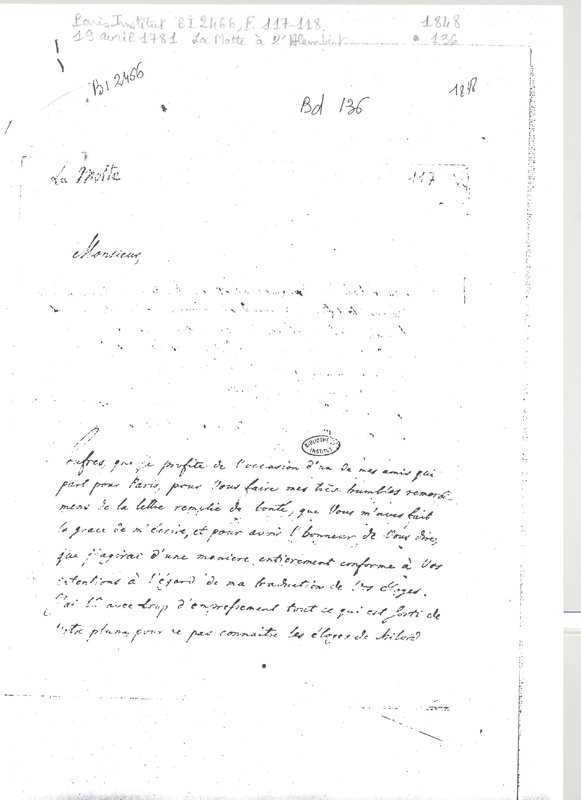 Paris Institut BI 2466, f. 117-118. 1848
19 avril 1781 La Motte à D'Alembert 136
BI 2466
1848
Bd 136
La Motte 117
Monsieur,
BIBLIOTHE INSTITUT
oufres, que je profite de l'occasion d'un de mes amis qui
part pour Paris, pour Vous faire mes très humbles remerci-
mens de la lettre remplie de bonté, que Vous m'avez fait
la grace de m'écrire, et pour avoir l'honneur de Vous dire,
que j'agirai d'une maniere entierement conforme à Vos
intentions à l'égard de ma traduction de Vos éloges.
J'ai lu avec trop d'empressement tout ce qui est sorti de
Votre plume pour ne pas connaitre les éloges de Milord